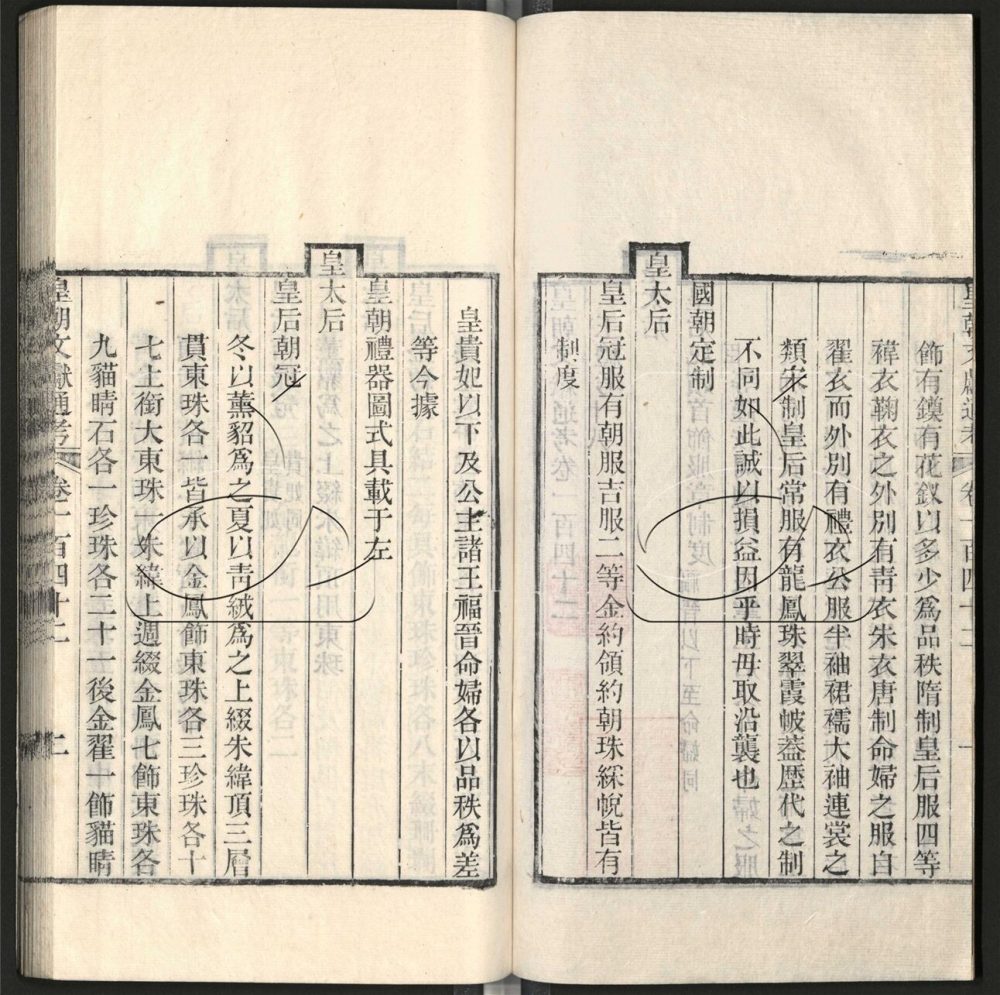 皇朝文獻通考 卷一百四十二 一
飾有鏌有花釵以多少爲品秩隋制皇后服四等
褘衣鞠衣之外別有靑衣朱衣唐制命婦之服自
翟衣而外別有禮衣公服半袖裙襦大袖連裳之
類宋制皇后常服有龍鳳珠翠霞帔葢歷代之制
不同如此誠以損益因乎時毋取沿襲也
國朝定制
皇太后
皇后冠服有朝服吉服二等金約領約朝珠綵帨皆有
制度
皇貴妃以下及公主諸王福晉命婦各以品秩爲差
等今據
皇朝禮器圖式具載于左
皇太后
皇后朝冠
冬以薰貂爲之夏以靑絨爲之上綴朱緯頂三層
貫東珠各一皆承以金鳳飾東珠各三珍珠各十
七上銜大東珠一朱緯上週綴金鳳七飾東珠各
九貓睛石各一珍珠各二十一後金翟一飾貓睛
皇朝文獻通考 卷一百四十二 二